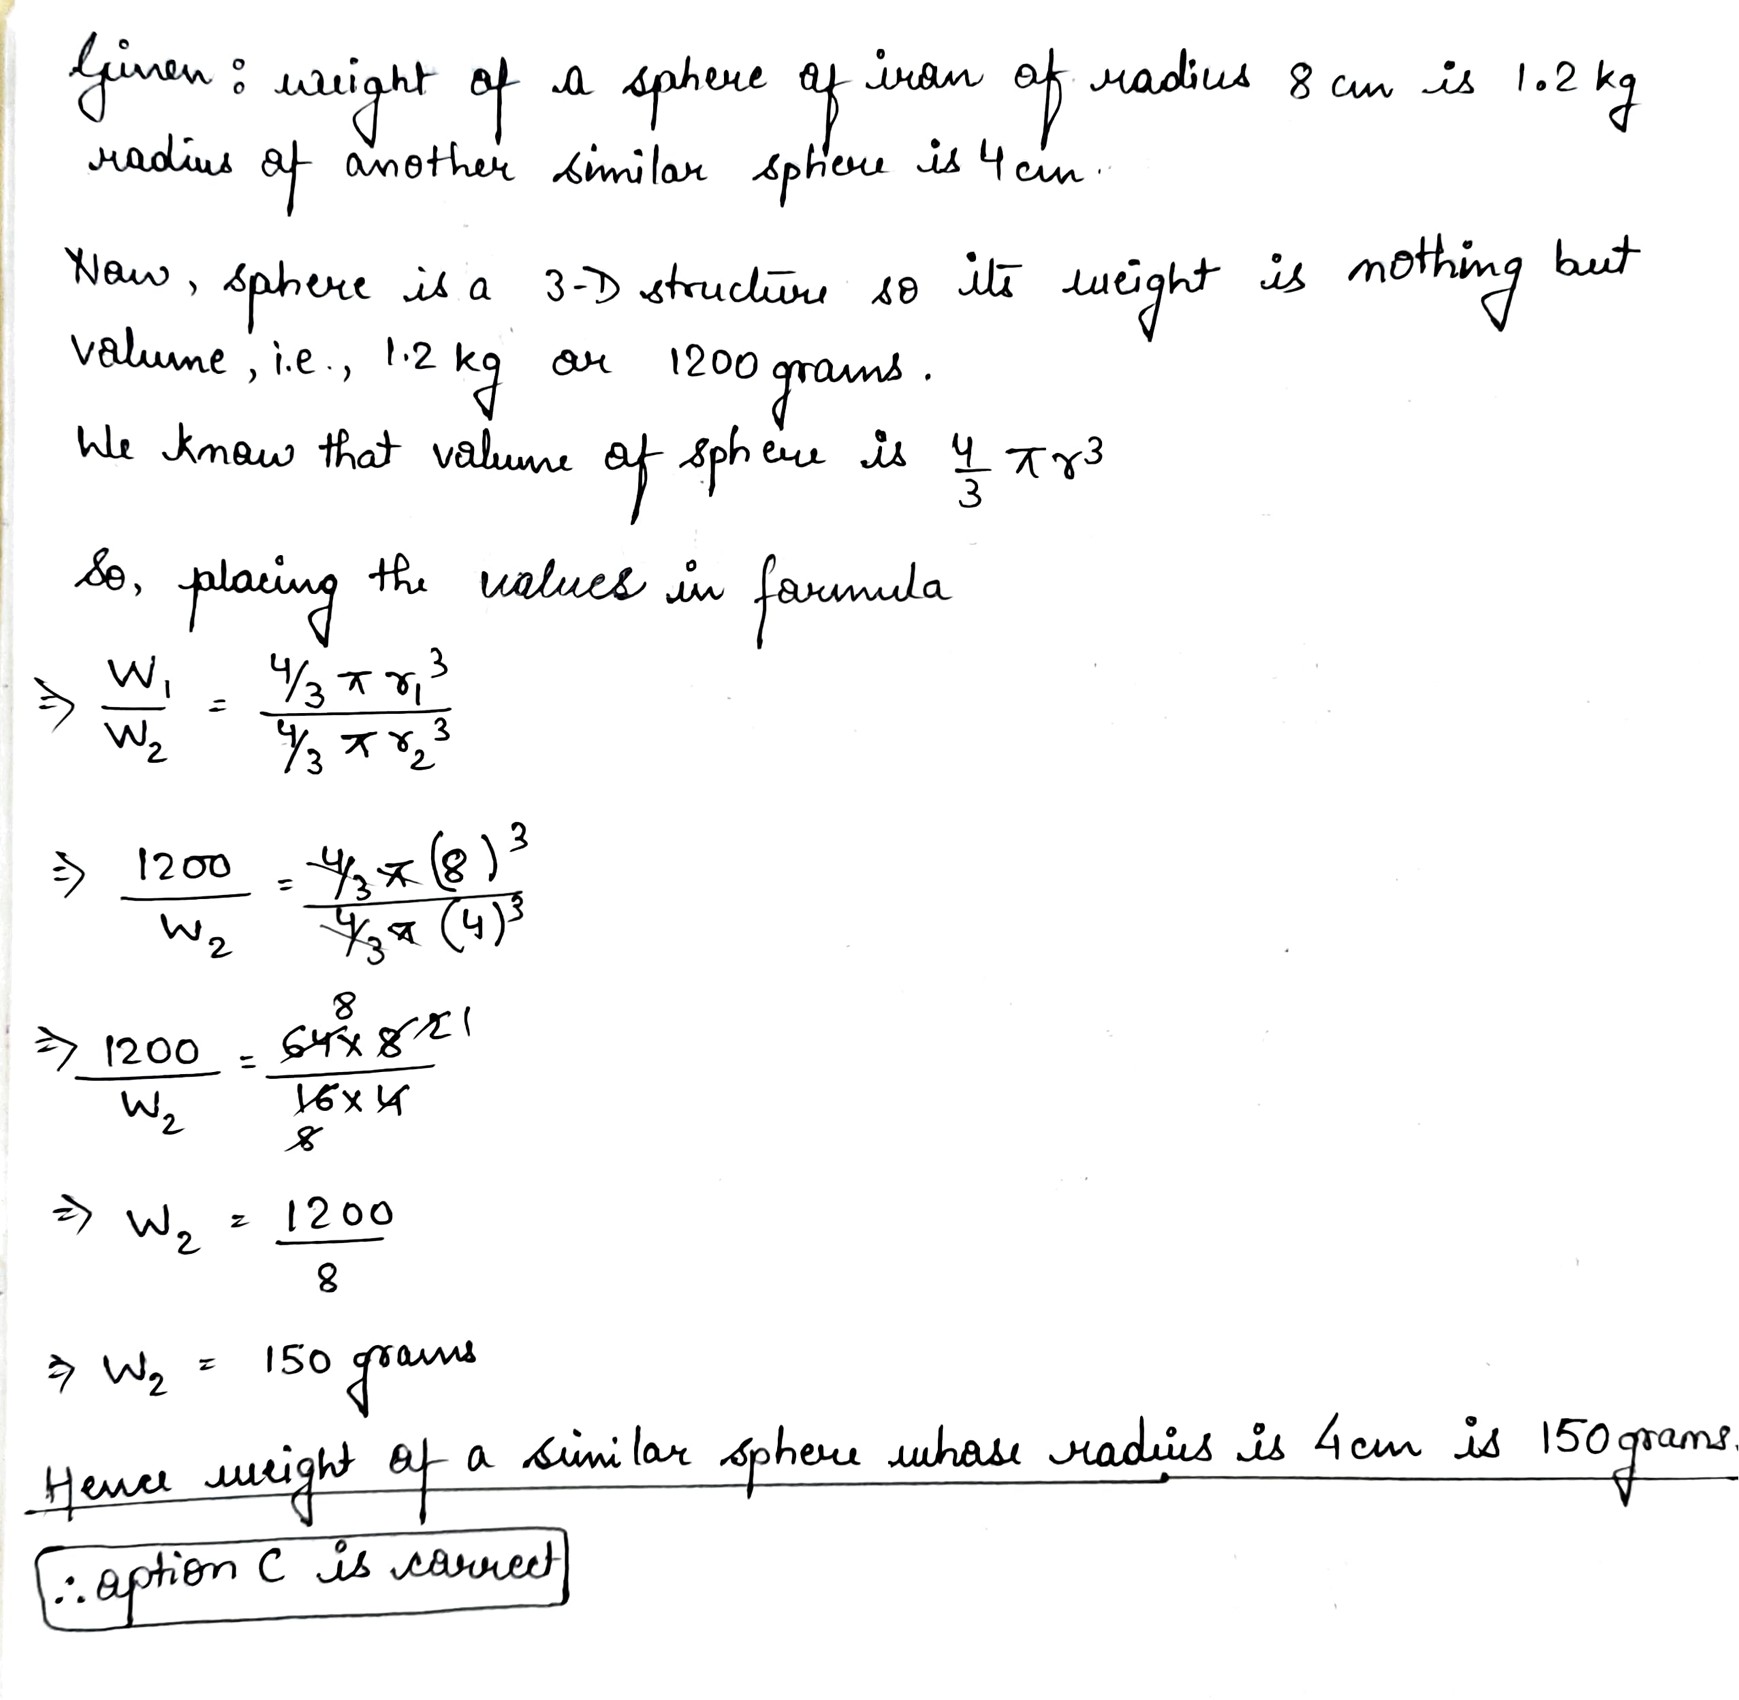 Given: weight of a sphere of iron of radius 8 cm is 1.2 kg
radius of another similar sphere is 4 cm.
Now, sphere is a 3-D structure so its weight is nothing but
volume, i.e., 1.2 kg or 1200 grams.
We know that volume of sphere is 4/3 πr³
So, placing the values in formula
⇒ W₁/W₂ = (4/3 π r₁³)/(4/3 π r₂³)
⇒ 1200/W₂ = (4/3 π (8)³)/(4/3 π (4)³)
8
⇒ 1200/W₂ = (64 × 8 2 1)/(16 × 4)
8
⇒ W₂ = 1200/8
⇒ W₂ = 150 grams
Hence weight of a similar sphere whose radius is 4 cm is 150 grams.
∴ option C is correct